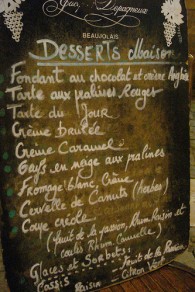 Duboeuf
BEAUJOLAIS
DESSERTS Maison
Fondant au chocolat et crème Anglaise
Tarte aux pralines Rouges
Tarte du Jour
Crème brulée
Crème Caramel
Oeufs en neige aux pralines
Fromage blanc, Crème
Cervelle de Canuts (herbes)
Coupe créole
(fruit de la passion, Rhum Raisin et
coulis Rhum Cannelle)
Glaces et Sorbets:
Fruits de la Passion
Cassis Raisin Citron Vert